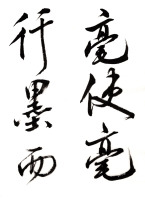 毫使毫
行墨而